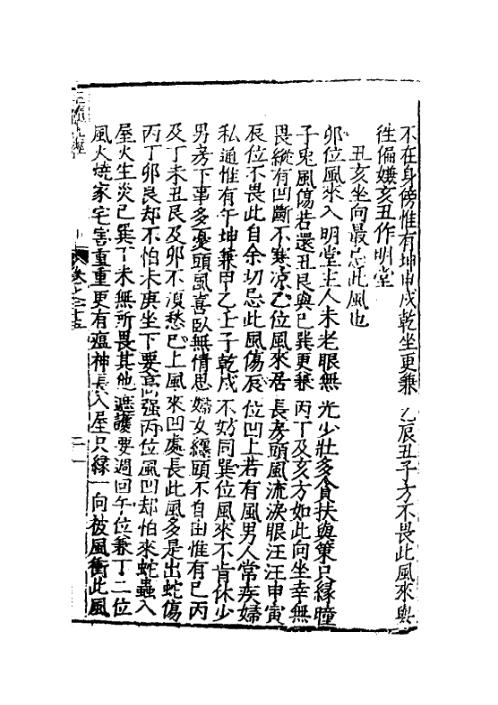 不在身傍惟有坤申戌乾坐更兼乙辰丑子方不畏此風來與
徃偏嫌亥丑作明堂
丑亥坐向最忌此風也
卯位風來入明堂主人未老眼無光少壯多貪扶與策只緣瞳
子鬼風傷若還丑艮與巳巽更兼丙丁及亥方如此向坐幸無
畏縱有凹斷不寒凉乙位風來君長房頭風流淚眼汪汪申寅
辰位不畏此自余切忌此風傷辰位凹上若有風男人常疾婦
私通惟有午坤兼甲乙壬子乾戌不妨同巽位風來不肯休少
男房下事多憂頭風喜臥無情思婦女纒頭不自由惟有巳丙
及丁未丑艮及卯不須愁巳上風來凹處長此風多是出蛇傷
丙丁卯艮却不怕未庚坐下要高强丙位風凹却怕來蛇蟲入
屋火生炎巳巽丁未無所畏其他遮護要過回午位兼丁二位
風火燒家宅害重重更有瘟神長入屋只緣一向被風衝此風
卷之二十五